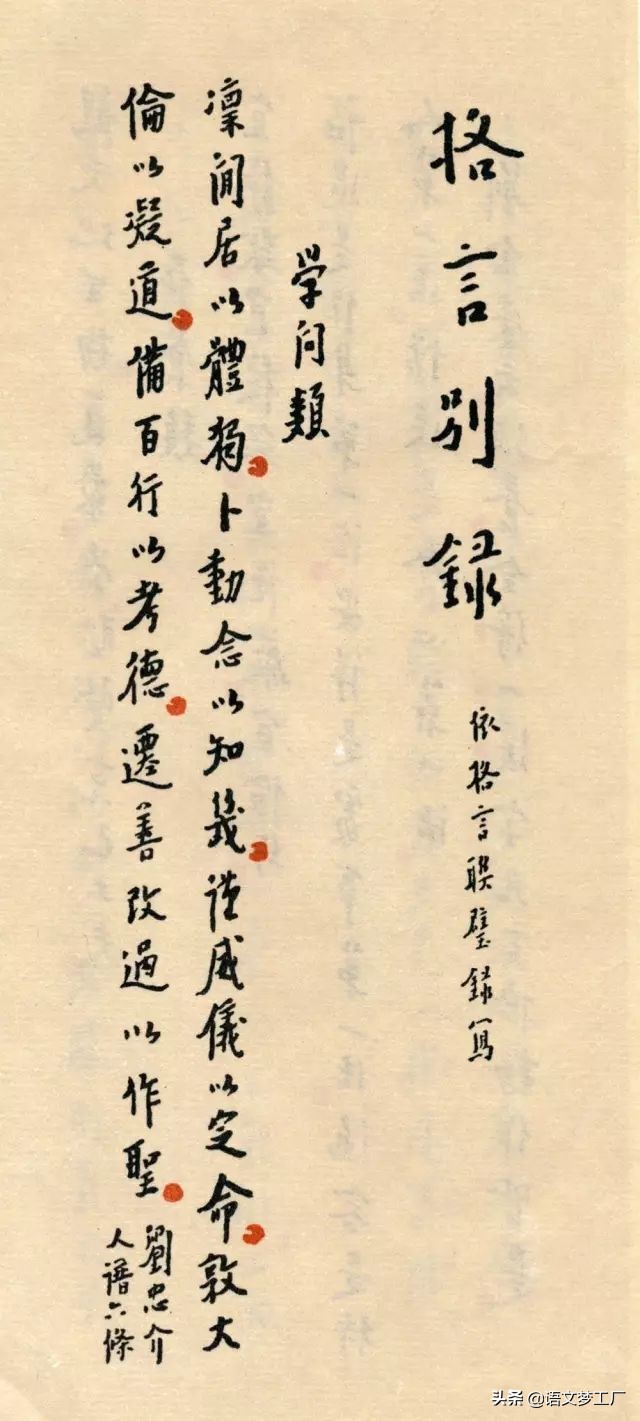 格言别録
依格言聯璧録寫
学问類
凜閒居以體獨卜動念以知幾谨威儀以定命敦大
倫以凝道備百行以考德遷善改過以作聖
劉忠介
人譜六條
头条 @语文梦工厂